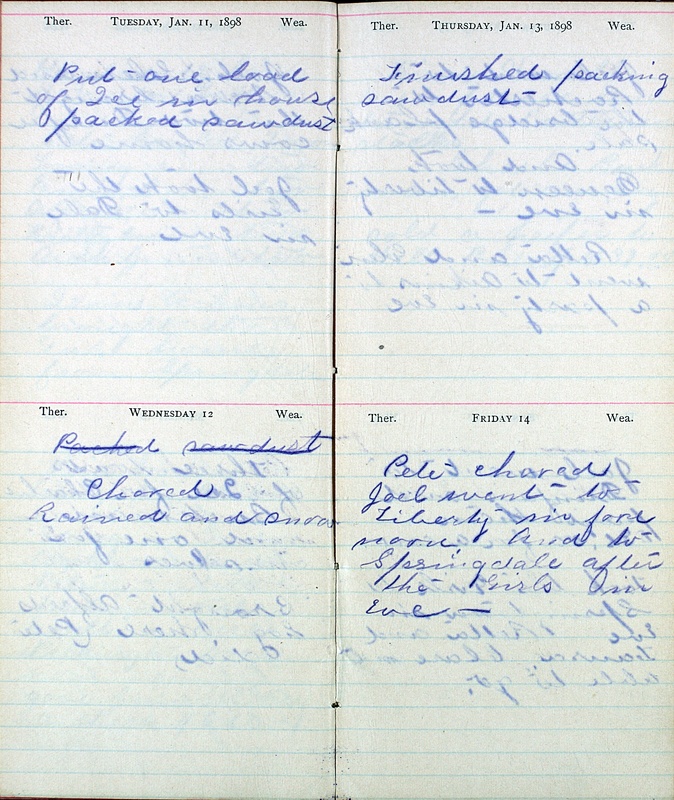 Ther. TUESDAY, JAN. 11, 1898 Wea.
Put one load
of Ice in house
packed sawdust
Ther. WEDNESDAY 12 Wea.
Packed sawdust
Chored
Rained and snow
Ther. THURSDAY, JAN. 13, 1898 Wea.
Finished packing
sawdust
Ther. FRIDAY 14 Wea.
Pete chored
Joel went to
Liberty in fore
noon And to
Springdale after
the Girls in
eve —